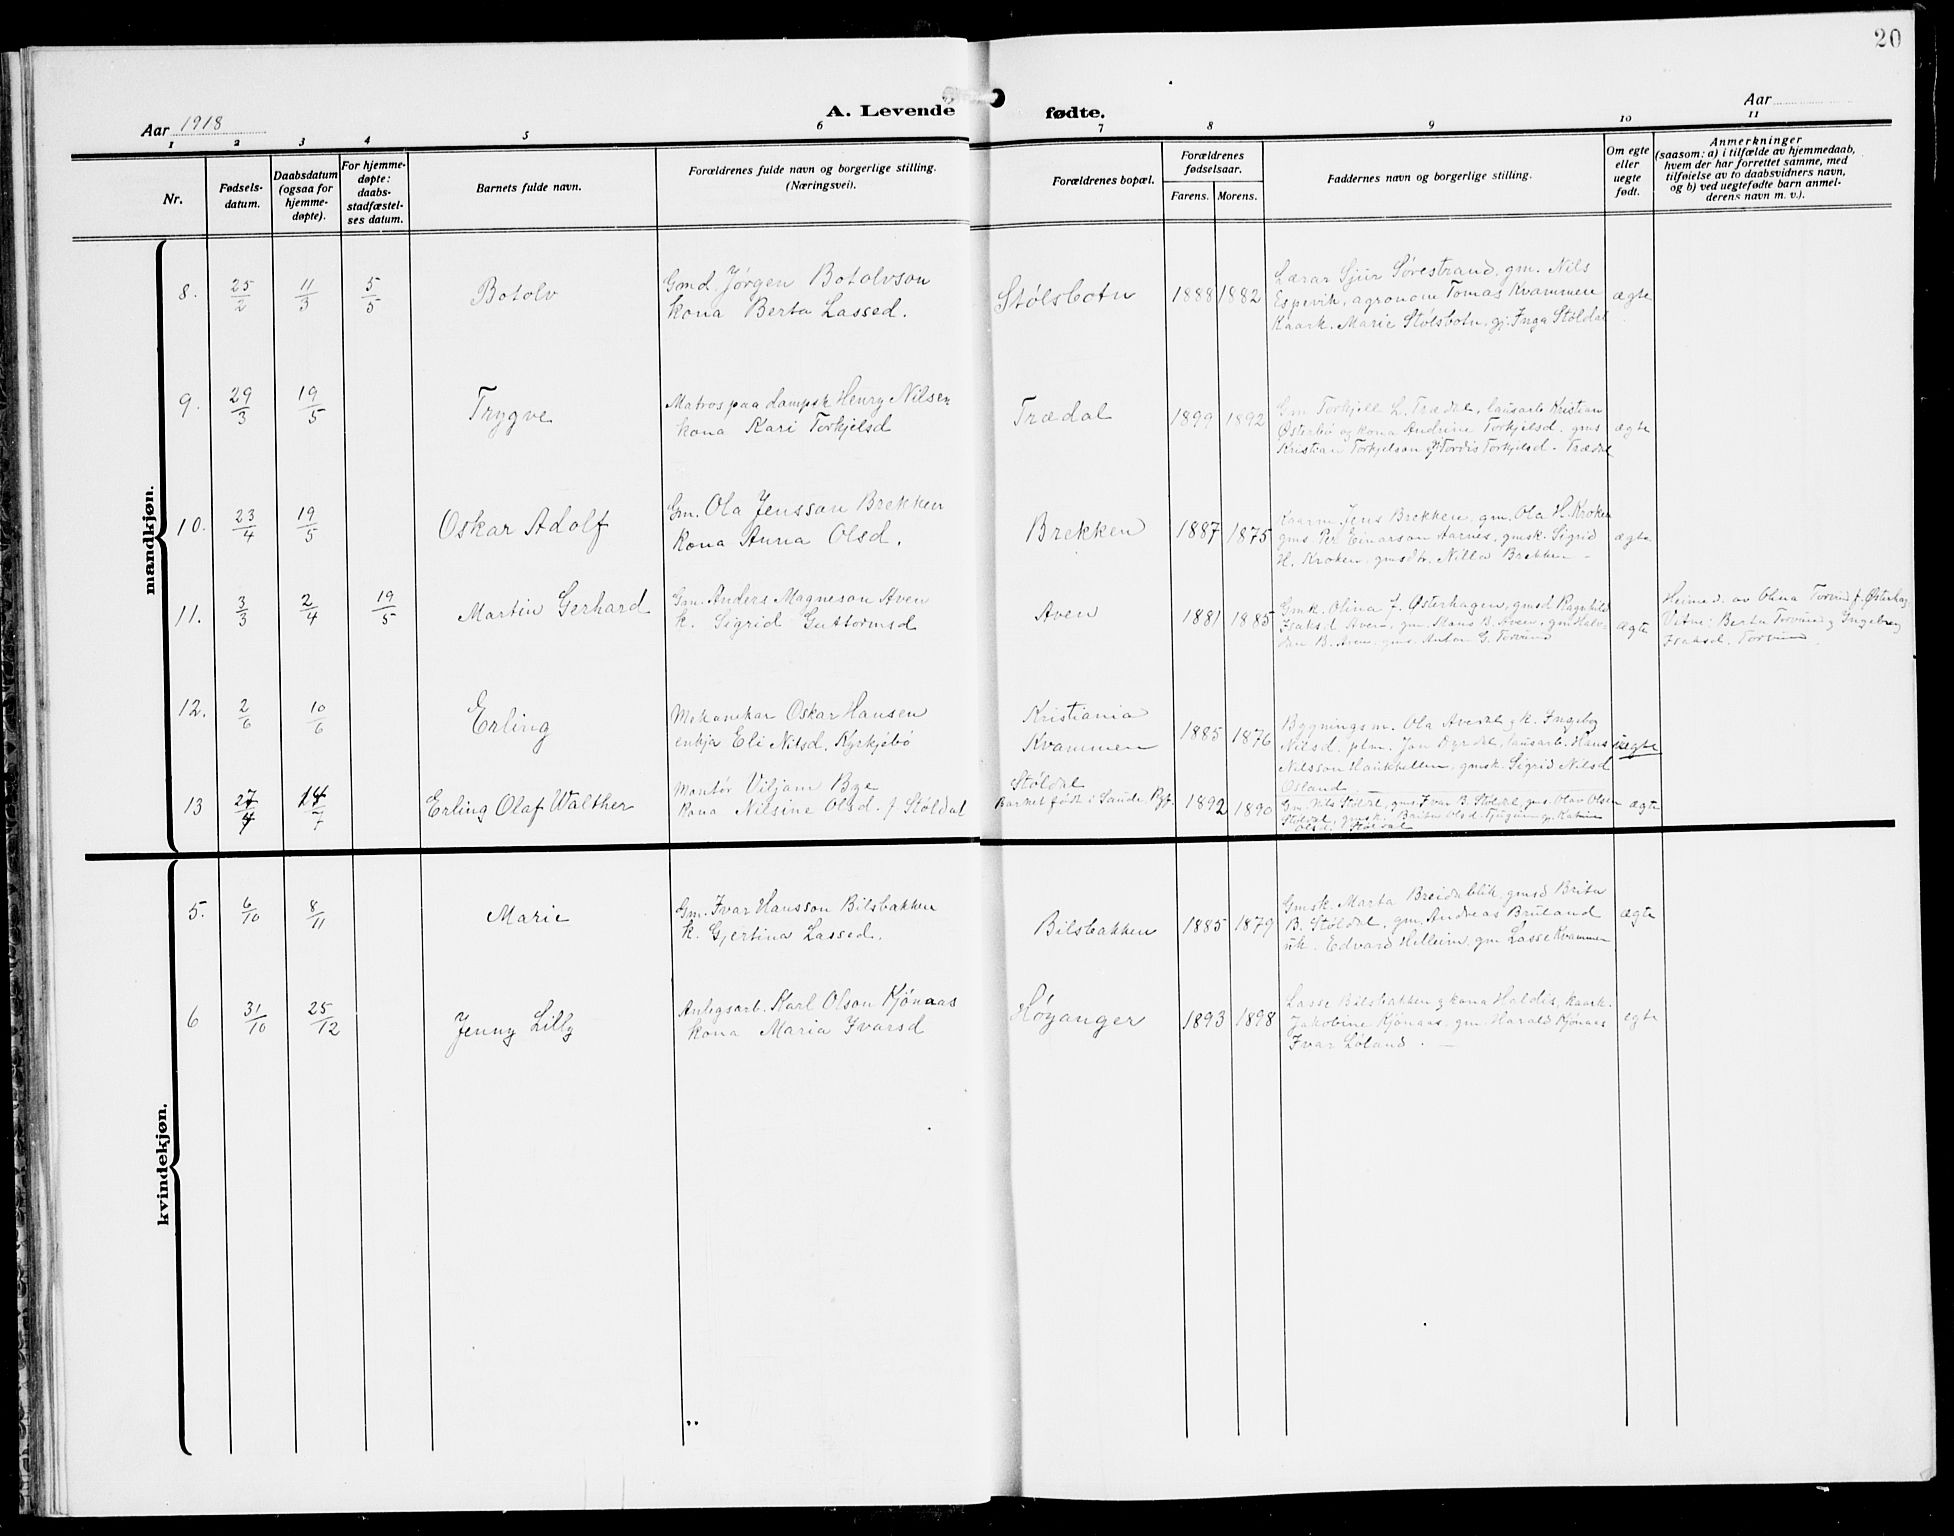 20
A. Levende fødte.
Aar 1918
Aar
1 2 3 4 5 6 7 8 9 10 11
Nr.
Fødsels-
datum.
Daabsdatum
(ogsaa for
hjemme-
døpte).
For hjemme-
døpte:
daabs-
stadfæstel-
ses datum.
Barnets fulde navn.
Forældrenes fulde navn og borgerlige stilling.
(Næringsvei).
Forældrenes bopæl.
Forældrenes
fødselsaar.
Farens. Morens.
Faddernes navn og borgerlige stilling.
Om egte
eller
uegte
født.
Anmerkninger
(saasom: a) i tilfælde av hjemmedaab,
hvem der har forrettet samme, med
tilføielse av to daabsvidners navn,
og b) ved uegtefødte barn anmel-
derens navn m. v.).
mandkjøn.
8. 25/2 11/3 5/5 Botolv
Gmd. Jørgen Botolvson
kona Berta Lassed.
Stølsbotn 1888 1882
Lærar Sjur Sørestrand, gm. Nils
Espevik, agronom Tomas Kvammen
Kaark. Marie Stølsbotn, gj. Inga Støldal
ægte
9. 29/3 19/5 Trygve
Matros paa dampsk Henry Nilsen
kona Kari Torkjelsd
Trædal 1899 1892
Gm Torkjell L. Trædal, lausarb Kristian
Østerbø og kona Andrine Torkjelsd. gms
Kristian Torkjelson og Tordis Torkjelsd. Trædal
ægte
10. 23/4 19/5 Oskar Adolf
Gm. Ola Jensson Brekken
kona Anna Olsd.
Brekken 1887 1875
Kaarm. Jens Brekken, gm. Ola H. Kroken
gms Per Einarson Aarnes, gmsk. Sigrid
H. Kroken, gmsdtr. Nilla Brekken
ægte
11. 3/3 2/4 19/5 Martin Gerhard
Gm. Anders Magneson Aven
k. Sigrid Guttormsd
Aven 1881 1885
Gmk. Olina J. Østerhagen, gmsd Ragnhild
Isaksd Aven, gm. Hans B. Aven, gm Halv-
dan B. Aven, gms. Anton G. Torvund
ægte
Heimed. av Olina Torvund f. Østerhag.
Vitne: Berta Torvund og Ingebrog
Isaksd. Torvund
12. 2/6 10/6 Erling
Mekanikar Oskar Hansen
enkja Eli Nilsd. Kyrkjebø
Kristiania
Kvammen
1885 1876
Bygningsm. Ola Avedal og k. Ingebog
Nilsd. plm. Jon Dyrdal, lausarb. Hans
Nilsson Haukhellen, gmsk. Sigrid Nilsd
Osland
uægte
13 27/4 14/7 Erling Olaf Walther
Montør Viljam Bye
Kona Nilsine Olsd. f Støldal
Støldal
Barnet født i Saude Ryf.
1892 1890
Gm. Nils Støldal, gms. Ivar B. Støldal, gms. Olav Olsen
Støldal, gmsk. Brita Olsd. gj. Katrine
Olsd. Støldal
ægte
kvindekjøn.
5. 6/10 8/11 Marie
Gm. Ivar Hansson Bilsbakken
k. Gjertina Lassed.
Bilsbakken 1885 1879
Gmsk. Marta Breidablik, gmsd Brita
B. Støldal, gm. Andreas Bruland
uk. Edvard Helleim, gm Lasse Kvammen
ægte
6 31/10 25/12 Jenny Lilly
Anlegsarb. Karl Olson Kjønaas
kona Maria Ivarsd
Høyanger 1893 1898
Lasse Bilsbakken og kona Haldis, kaark.
Jakobine Kjønaas, gm. Harald Kjønaas
Ivar Løland.
egte